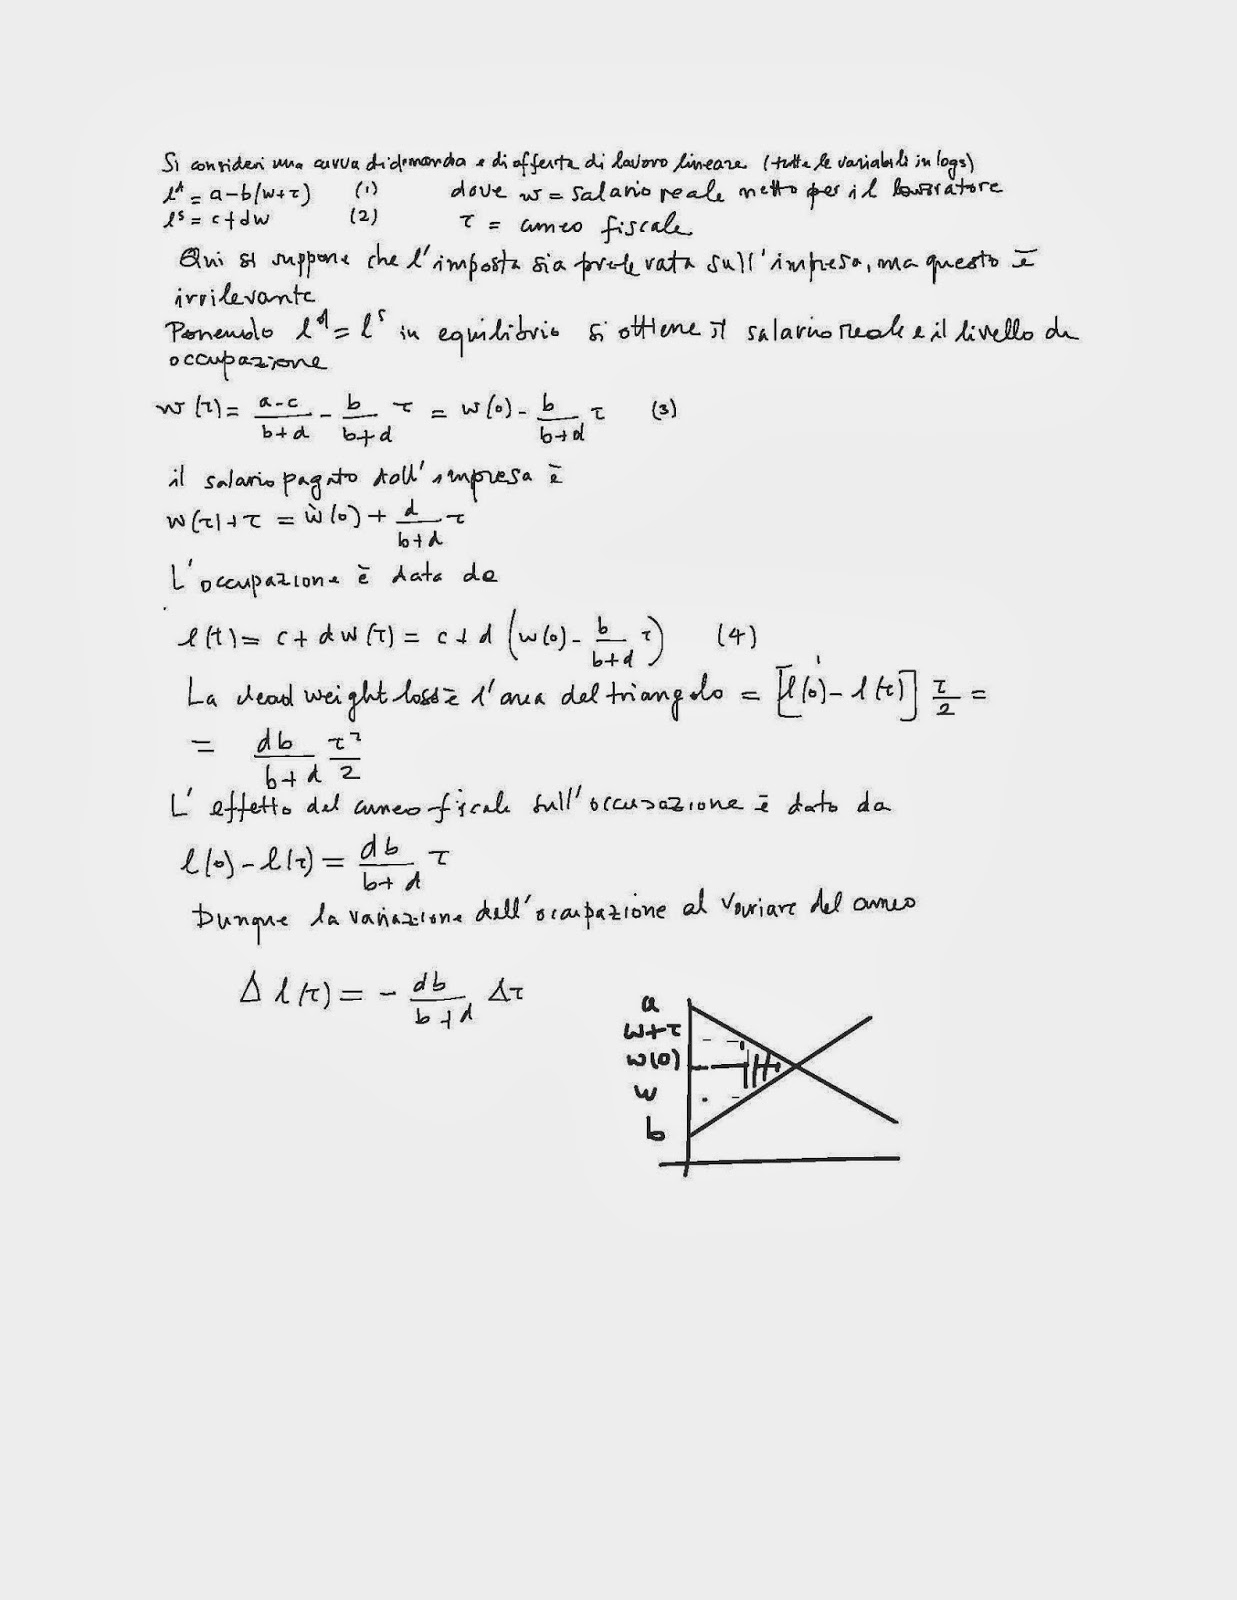 Si consideri una curva di domanda e di offerta di lavoro lineare (tutte le variabili in logs)
l^d = a-b(w+τ) (1) dove w = salario reale netto per il lavoratore
l^s = c+dw (2) τ = cuneo fiscale
Qui si suppone che l'imposta sia prelevata sull'impresa, ma questo è
irrilevante
Ponendo l^d = l^s in equilibrio si ottiene il salario reale e il livello di
occupazione
w(τ) = (a-c)/(b+d) - b/(b+d) τ = w(0) - b/(b+d) τ (3)
il salario pagato dall'impresa è
w(τ)+τ = w(0) + d/(b+d) τ
L'occupazione è data da
l(τ) = c+dw(τ) = c+d (w(0) - b/(b+d) τ) (4)
La dead weight loss è l'area del triangolo = [l(0) - l(τ)] τ/2 =
= db/(b+d) τ²/2
L'effetto del cuneo fiscale sull'occupazione è dato da
l(0) - l(τ) = db/(b+d) τ
Dunque la variazione dell'occupazione al variare del cuneo
Δ l(τ) = - db/(b+d) Δτ
a
w+τ
w(0)
w
b